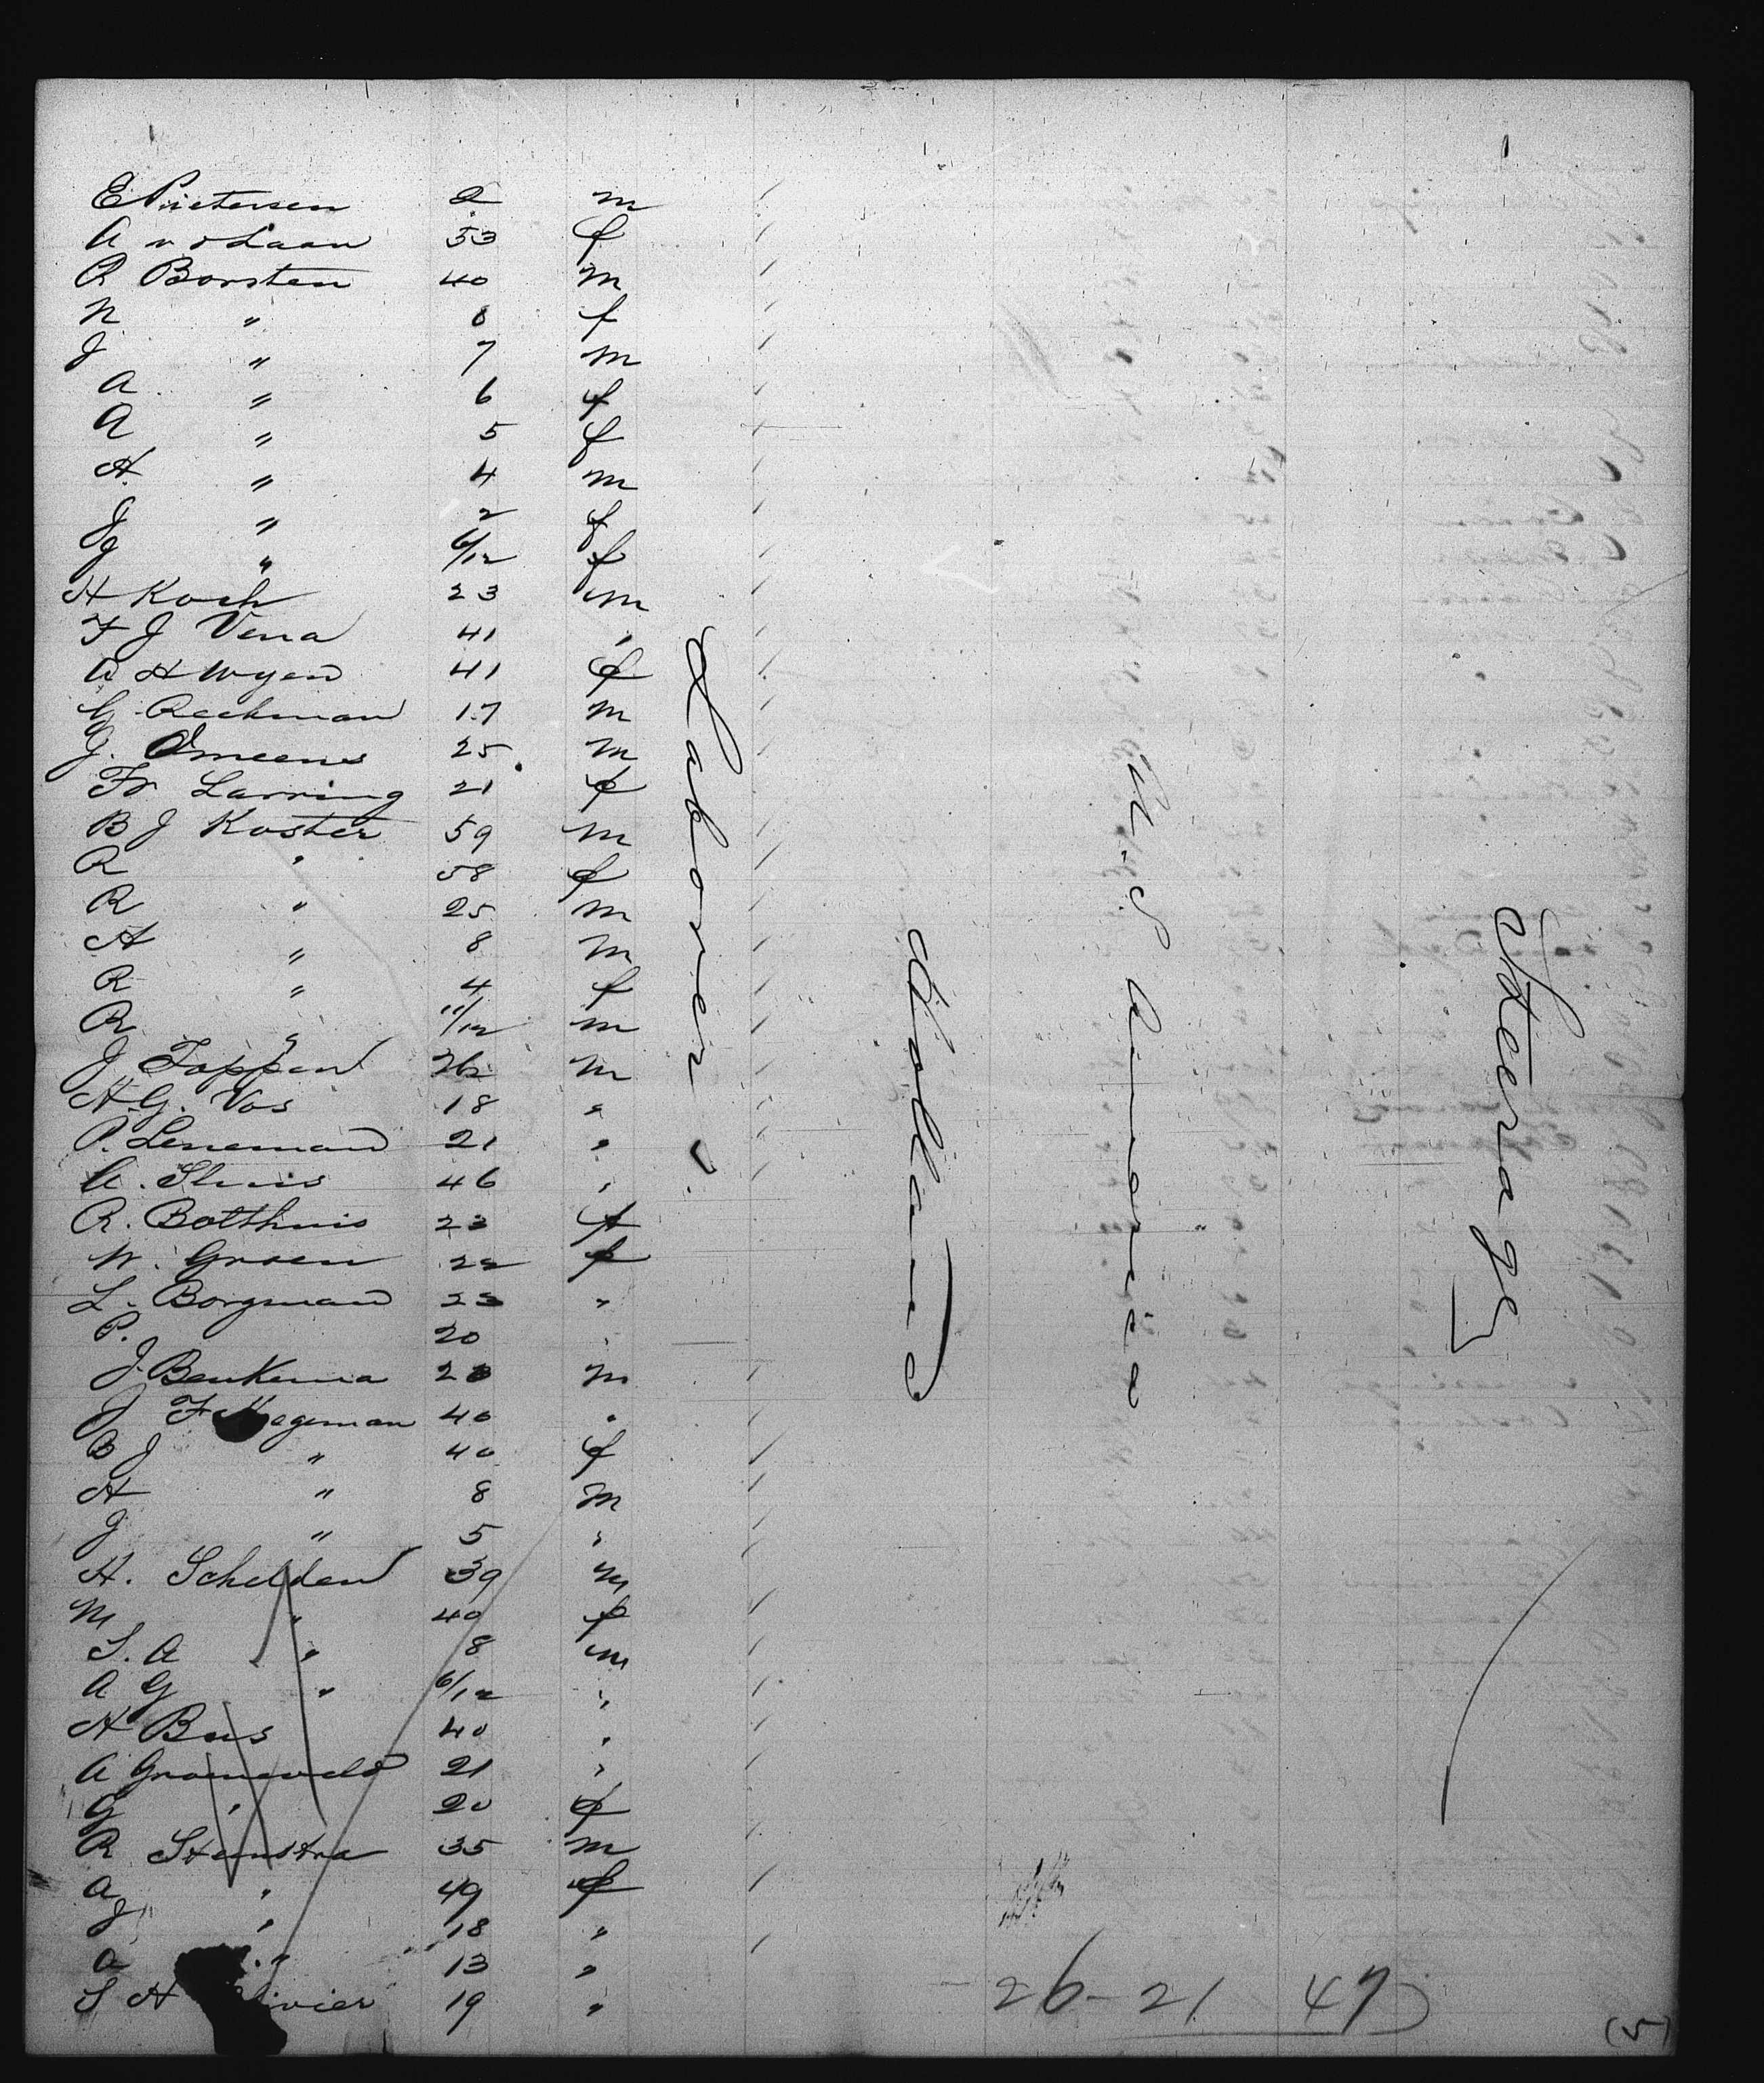 E Pietersen 2 m
A v d Laan 53 f
R Borsten 40 m
N " 8 f
J " 7 m
A " 6 f
A " 5 f
H. " 4 m
J " 2 f
J " 6/12 f
H Koch 23 m
F J Vena 41 "
A H Wyen 41 f
G. Reekman 17 m
J. Omeens 25 m
Fr Larring 21 f
B J Koster 59 m
R " 58 f
R " 25 m
H " 8 m
R " 4 f
R " 11/12 m
J Toppen m
H. G. Vos 18 "
P. Leneman 21 "
A. Sluis 46 "
R. Bolthuis 23 f
W. Groen 22 f
L. Borgman 23 "
P. 20 "
J. Beukema m
J F Hageman 40 "
B J " 40 f
H " 8 m
J " 5 "
H. Schelden 39 m
M " 40 f
S. A " 8 m
A G " 6/12 "
H Bus 40 "
A Groeneveld 21 "
G " 20 f
R Stenstra 35 m
A " 49 f
J " 18 "
A " 13 "
S H 19 "
Laborer
Holland
U. S. America
Steerage
26 - 21 47
(5)